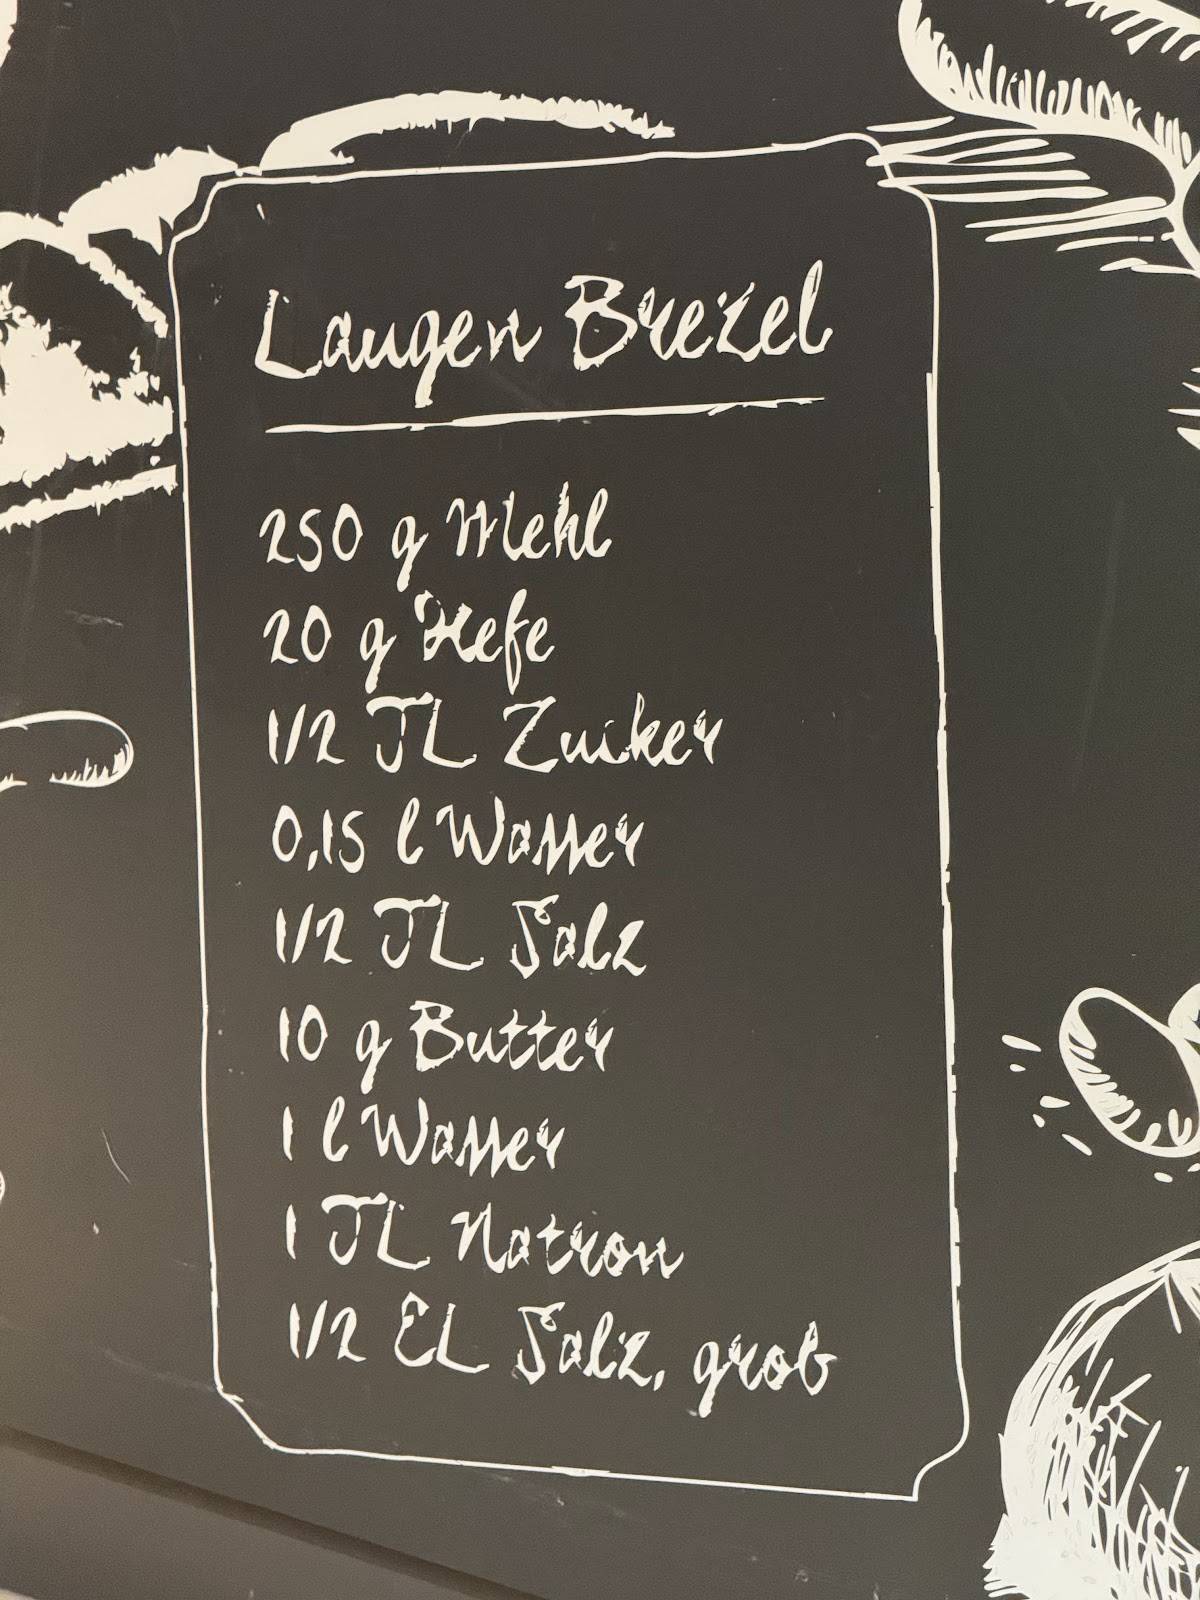 Laugen Brezel
250 g Mehl
20 g Hefe
1/2 TL Zucker
0,15 l Wasser
1/2 TL Salz
10 g Butter
1 l Wasser
1 TL Natron
1/2 EL Salz, grob